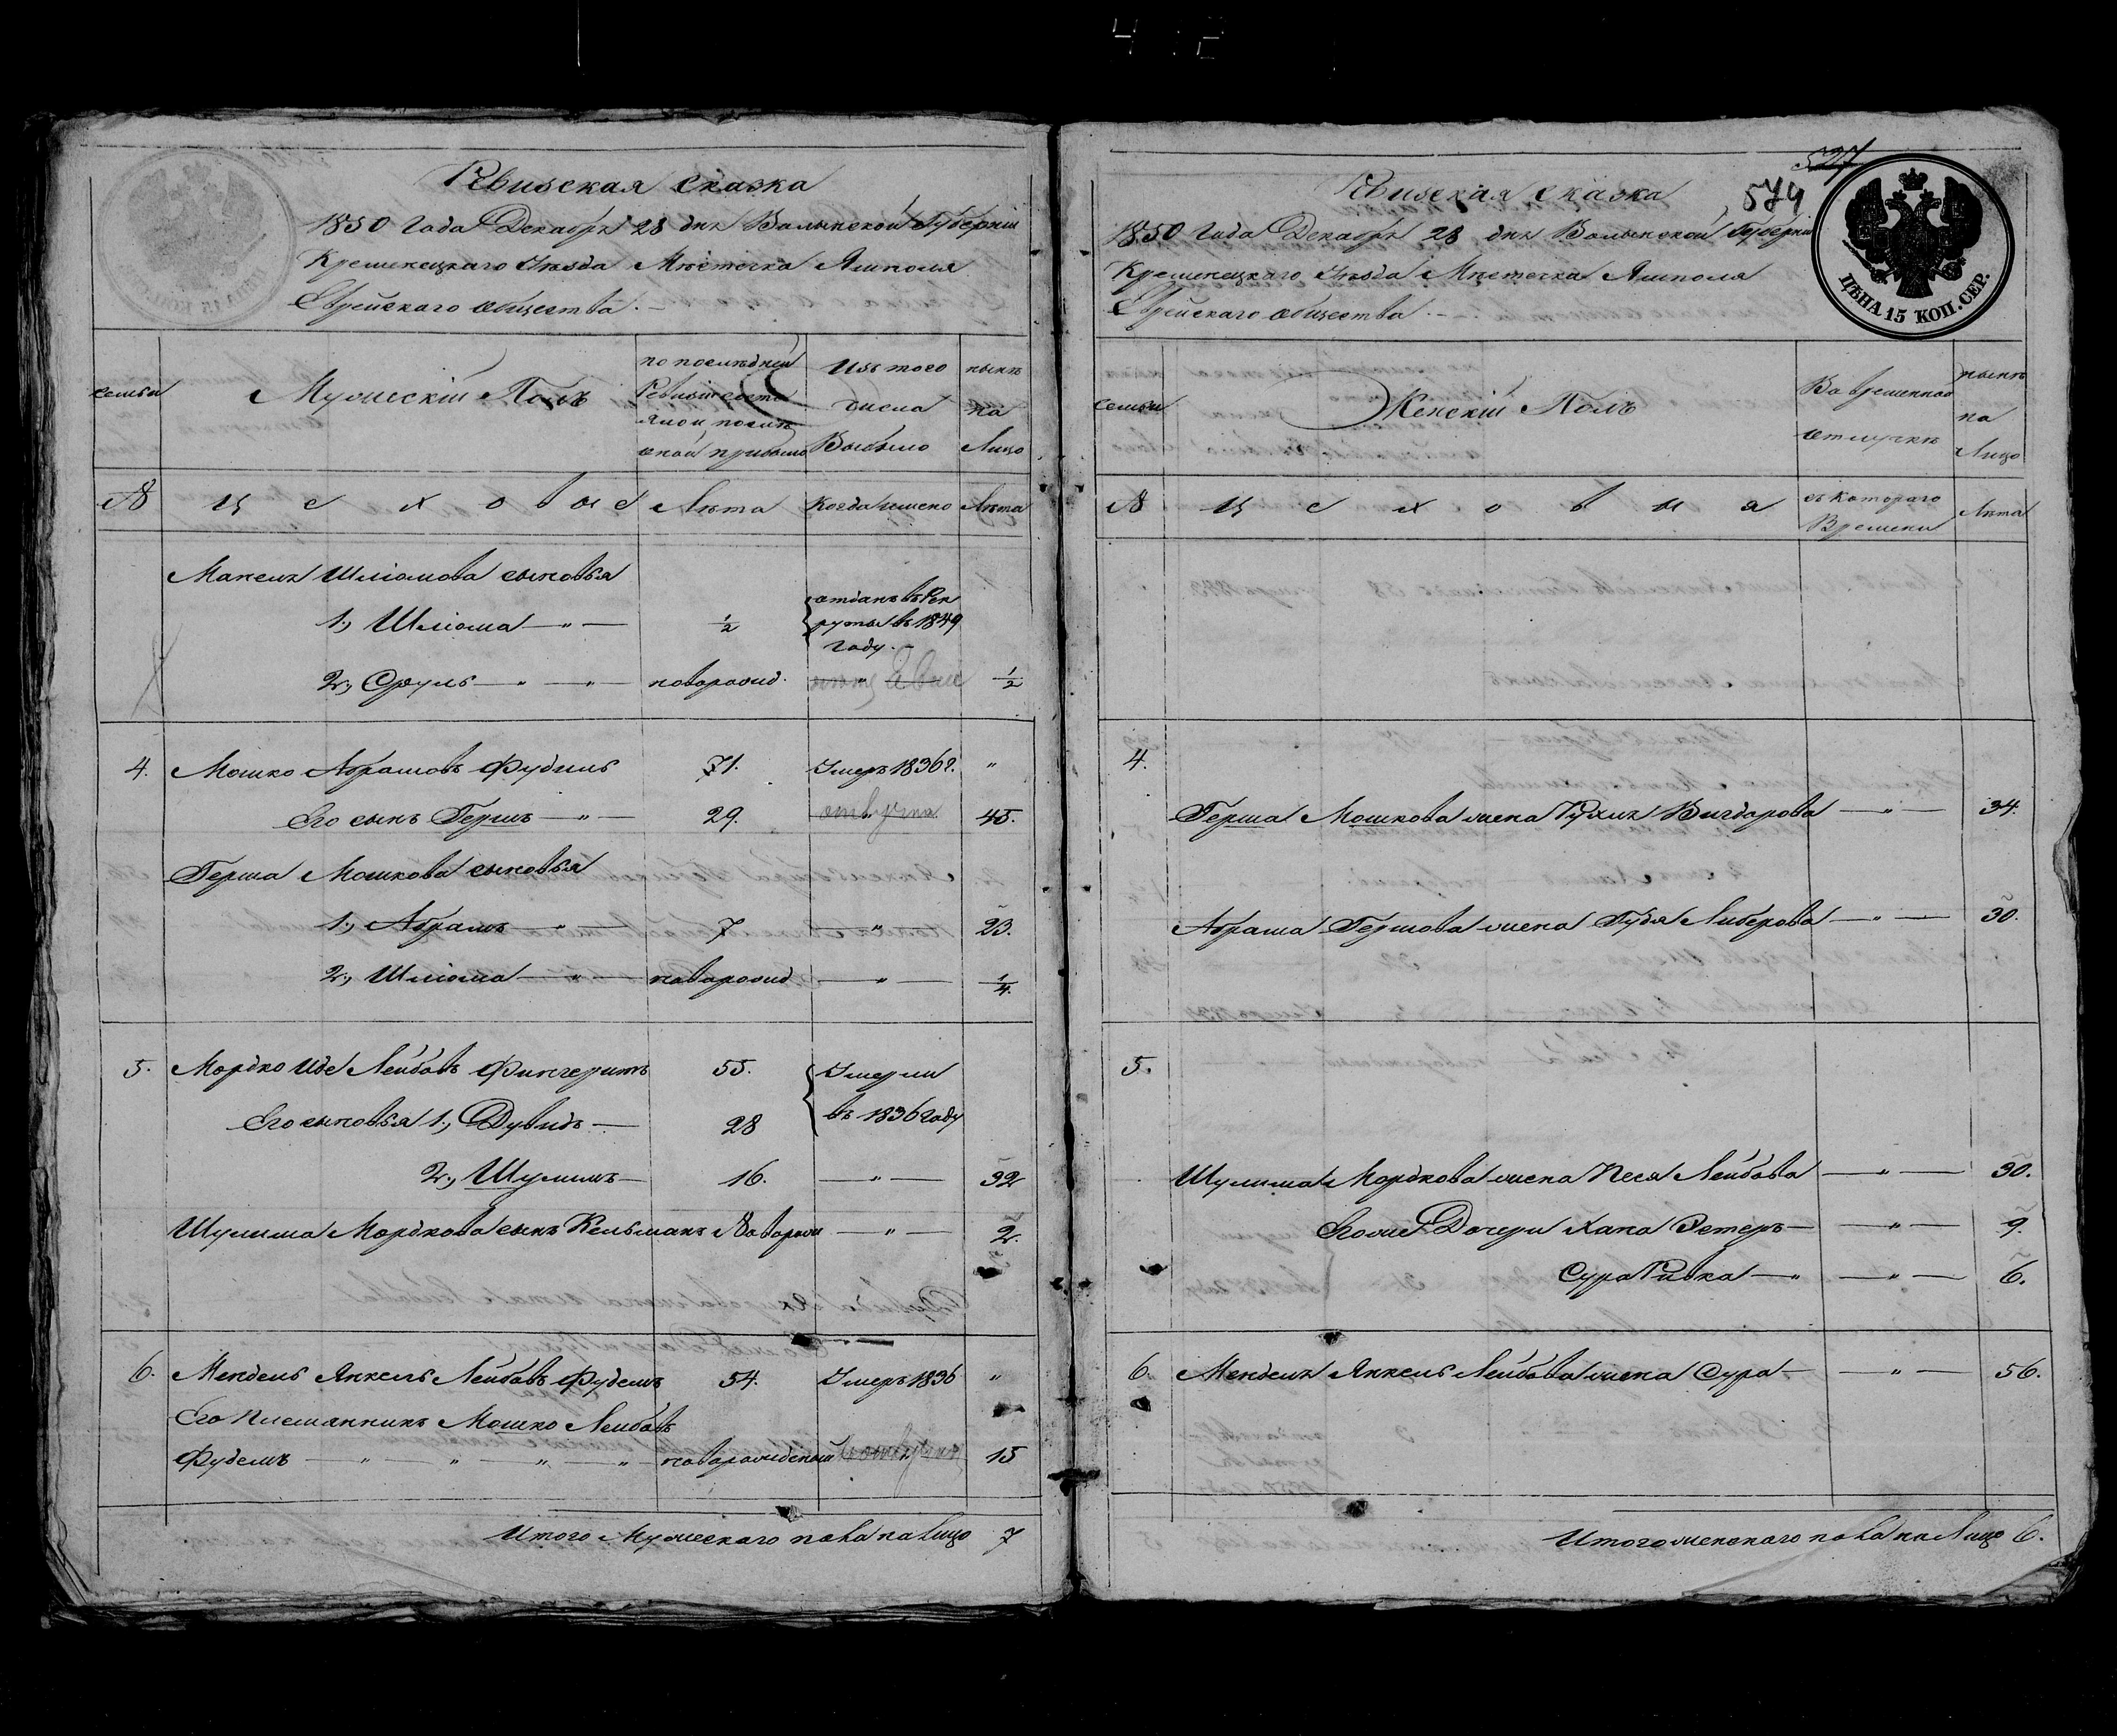 Ревизская сказка
1850 года Декабря 28 дня Волынской Губерніи
Кременецкаго Уѣзда Мѣстечка Ямполя
Еврейскаго общества. –
семьи
Мужескій Полъ
по послѣдней
Ревизіи состо
яло и послѣ
оной прибыло
Изъ того
числа
Выбыло
нынѣ
на
Лицо
№ ц е х о в ы е Лѣта Когда именно Лѣта
Манеля Шліомова сыновья
1., Шліома — „ — 1/2 отданъ въ Рек
руты въ 1849
году. –
2., Сруль — „ — „ — новорожд. 1/2
4. Мошко Абрамовъ Фудимъ 71. Умеръ 1836 г. „
Его сынъ Гершъ — „ — 29. 45.
Герша Мошкова сыновья
1., Абрамъ — „ — 7 — „ — 23.
2., Шліома — „ — новорожд — „ — 1/4.
5. Мордко Иде Лейбовъ Фингеритъ 55. Умерли
въ 1836 году
Его сыновья 1., Дувидъ — 28
2., Шулимъ — 16. — „ — 32
Шулима Мордкова сынъ Кельманъ Новорож — „ — 2.
6. Мендель Янкель Лейбовъ Фудемъ 54. Умеръ 1836 „
Его Племянникъ Мошко Лейбовъ
Фудемъ — „ — „ — „ — „ новорожденый 15
Итого Мужескаго пола на лицо 7
527
579
Ревизская сказка
1850 года Декабря 28 дня Волынской Губерніи
Кременецкаго Уѣзда Мѣстечка Ямполя
Еврейскаго общества. –
ЦѢНА 15 КОП. СЕР.
семьи
Женскій Полъ
Во временной
отлучкѣ
нынѣ
на
Лицо
№ ц е х о в ы я съ котораго
Времени Лѣта
4.
Герша Мошкова жена Рухля Вигдорова — „ — 34.
Абрама Гершова жена Гудя Либерова — „ — 30.
5.
Шулима Мордкова жена Песя Лейбова — „ — 30.
Егоже Дочери Хана Эстеръ — — „ — 9.
Сура Ривка — „ — „ — 6.
6. Менделя Янкель Лейбова жена Сура — — „ — 56.
Итого женскаго пола на Лицо 6.